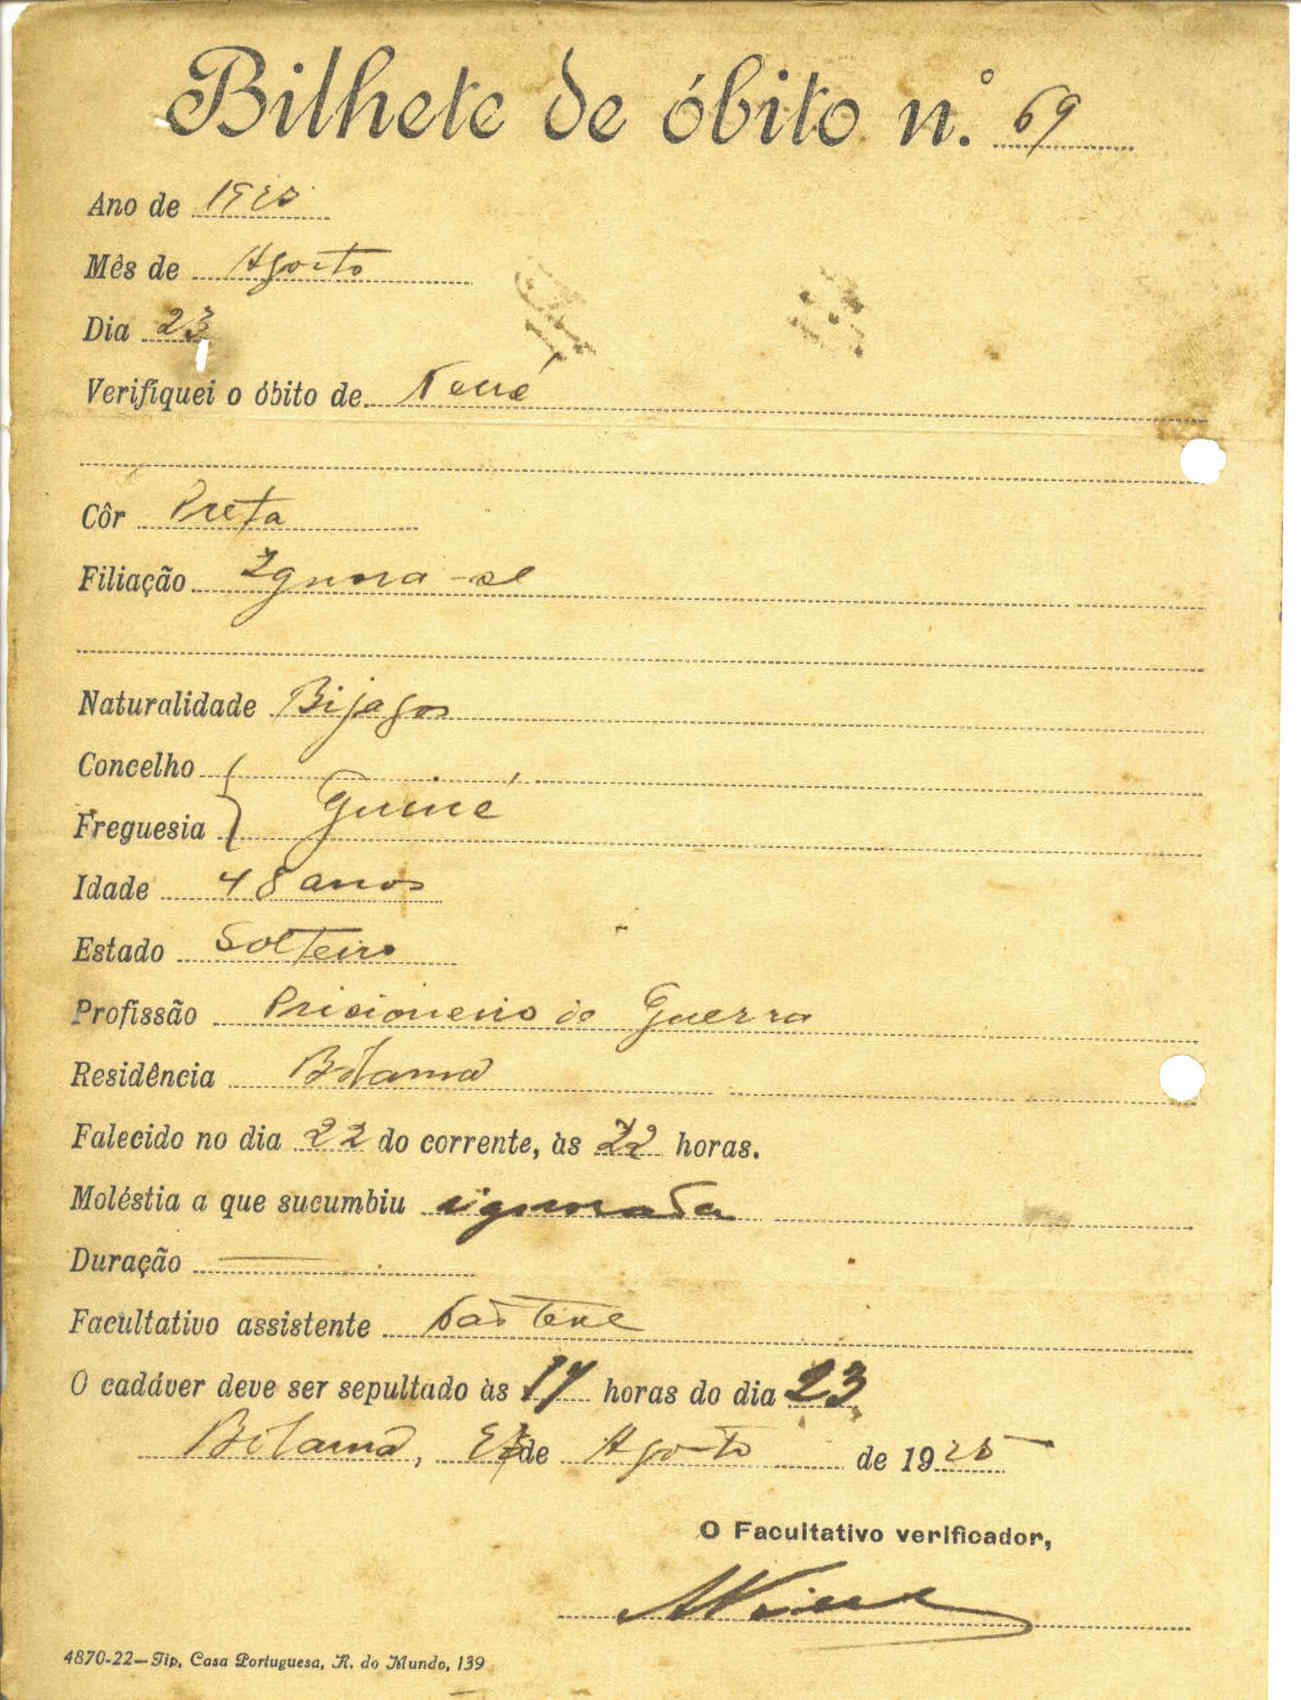 Bilhete de óbito n.º 69
Ano de 1925
Mês de Agosto
Dia 23
Verifiquei o óbito de
Côr Preta
Filiação Ignora-se
Naturalidade Bijagos
Concelho
Freguesia } Guiné
Idade 48 anos
Estado Solteiro
Profissão Pricioneiro de Guerra
Residência Bolama
Falecido no dia 22 do corrente, às 22 horas.
Moléstia a que sucumbiu ignorada
Duração
Facultativo assistente
O cadáver deve ser sepultado às 17 horas do dia 23
Bolama, 23 de Agosto de 1925
O Facultativo verificador,
4870-22—Tip. Casa Portuguesa, R. do Mundo, 139